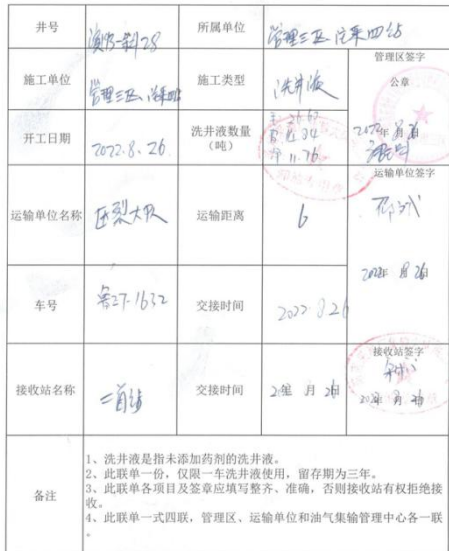 井号 所属单位 管理三区注采四站
施工单位 管理三区注采四站 施工类型 洗井液 管理区签字
公章
开工日期 2022.8.26 洗井液数量
（吨） 11.76 2022年8月26
运输单位名称 压裂大队 运输距离 6 运输单位签字
2022年8月26
车号 交接时间 2022.8.26
接收站名称 交接时间 8月26 接收站签字
2022年8月26
备注
1、洗井液是指未添加药剂的洗井液。
2、此联单一份，仅限一车洗井液使用，留存期为三年。
3、此联单各项目及签章应填写整齐、准确，否则接收站有权拒绝接
收。
4、此联单一式四联，管理区、运输单位和油气集输管理中心各一联
。